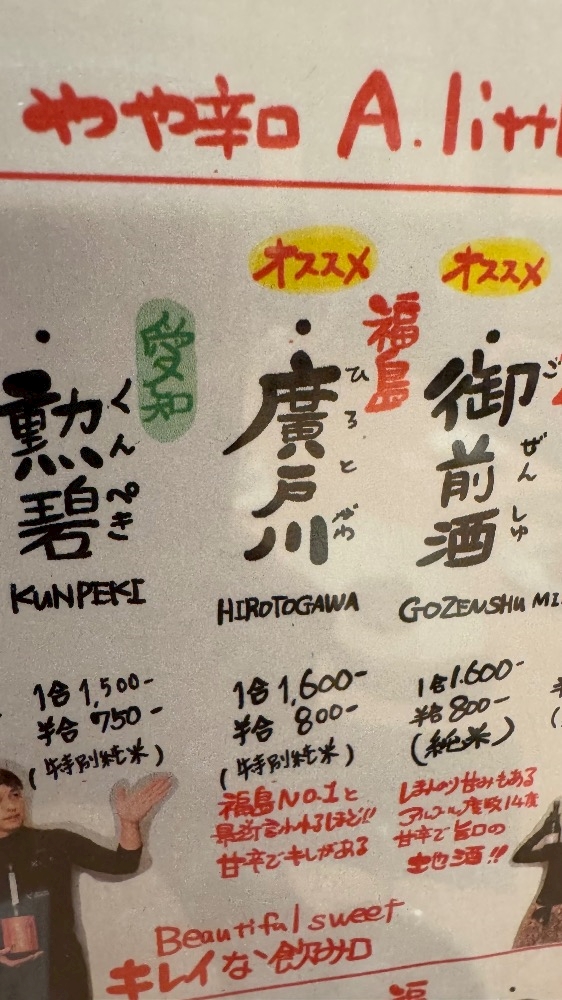 やや辛口 A.litt
愛知
勲碧
くんぺき
KUNPEKI
1合 1,500-
半合 750-
(特別純米)
オススメ
福島
廣戸川
ひろとがわ
HIROTOGAWA
1合 1,600-
半合 800-
(特別純米)
福島NO.1と
最近言われるほど!!
甘辛でキレがある
オススメ
御前酒
ご
ぜんしゅ
GOZENSHU MI
1合 1.600-
半合 800-
(純米)
しまんのり甘みもある
アルコール度数14度
甘辛で旨口の
土地酒!!
Beautiful sweet
キレイな飲み口
福